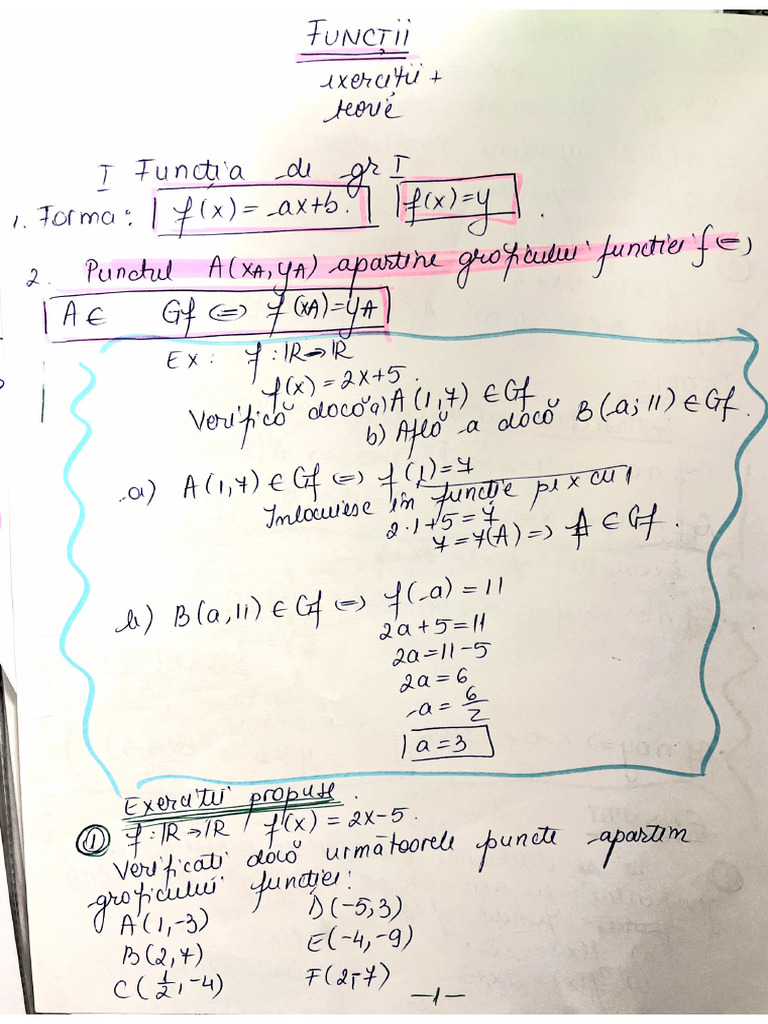 FUNCȚII
exerciții +
teorie
I Funcția de gr I
1. Forma: f(x) = ax+b. f(x)=y.
2. Punctul A(xA, yA) aparține graficului funcției f ⇔
A ∈ Gf ⇔ f(xA)=yA
Ex: f: IR→IR
f(x) = 2x+5.
Verifică dacă a) A(1,7) ∈ Gf
b) Află a dacă B(a; 11) ∈ Gf.
a) A(1,7) ∈ Gf ⇔ f(1)=7
Înlocuiesc în funcție pe x cu 1
2·1+5=7
7=7(A) ⇒ A ∈ Gf.
b) B(a,11) ∈ Gf ⇔ f(a) = 11
2a+5=11
2a=11-5
2a=6
a= 6/2
a=3
Exerciții propuse.
① f: IR→IR f(x) = 2x-5.
Verificați dacă următoarele puncte aparțin
graficului funcției:
A(1,-3) D(-5,3)
B(2,7) E(-4,-9)
C(1/2, -4) F(2,-7)
-1-